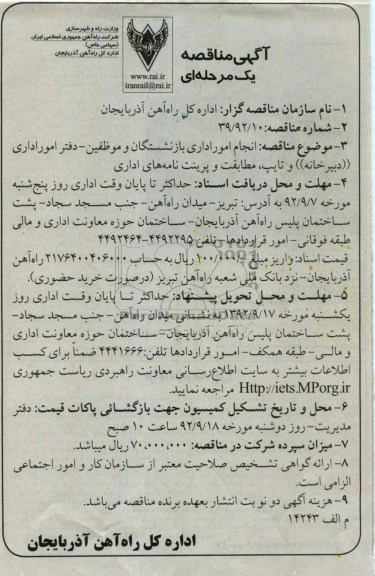 وزارت راه و شهرسازی
شرکت راه‌آهن جمهوری اسلامی ایران
(سهامی خاص)
اداره کل راه‌آهن آذربایجان
www.rai.ir
iranrail@rai.ir
آگهی مناقصه
یک مرحله‌ای
۱- نام سازمان مناقصه گزار: اداره کل راه‌آهن آذربایجان
۲- شماره مناقصه: ۳۹/۹۲/۱۰
۳- موضوع مناقصه: انجام امور اداری بازنشستگان و موظفین - دفتر امور اداری
((دبیرخانه)) و تایپ، مطابقت و پرینت نامه‌های اداری
۴- مهلت و محل دریافت اسناد: حداکثر تا پایان وقت اداری روز پنج‌شنبه
مورخه ۹۲/۹/۷ به آدرس: تبریز - میدان راه‌آهن - جنب مسجد سجاد - پشت
ساختمان پلیس راه‌آهن آذربایجان - ساختمان حوزه معاونت اداری و مالی
طبقه فوقانی - امور قراردادها - تلفن: ۴۴۹۲۲۹۵-۴۴۹۲۴۶۴
قیمت اسناد: واریز مبلغ ۱۰۰/۰۰۰ ریال به حساب ۲۱۷۶۴۰۰۴۰۶۰۰۰ راه‌آهن
آذربایجان - نزد بانک ملی شعبه راه‌آهن تبریز (درصورت خرید حضوری).
۵- مهلت و محل تحویل پیشنهاد: حداکثر تا پایان وقت اداری روز
یکشنبه مورخه ۱۳۹۲/۹/۱۷ به نشانی میدان راه‌آهن - جنب مسجد سجاد -
پشت ساختمان پلیس راه‌آهن آذربایجان - ساختمان حوزه معاونت اداری
و مالی - طبقه همکف - امور قراردادها تلفن: ۴۴۴۱۶۶۶ ضمناً برای کسب
اطلاعات بیشتر به سایت اطلاع‌رسانی معاونت راهبردی ریاست جمهوری
Http://iets.MPorg.ir مراجعه نمایید.
۶- محل و تاریخ تشکیل کمیسیون جهت بازگشائی پاکات قیمت: دفتر
مدیریت - روز دوشنبه مورخه ۹۲/۹/۱۸ ساعت ۱۰ صبح
۷- میزان سپرده شرکت در مناقصه: ۷۰،۰۰۰،۰۰۰ ریال میباشد.
۸- ارائه گواهی تشخیص صلاحیت معتبر از سازمان کار و امور اجتماعی
الزامی است.
۹- هزینه آگهی دو نوبت انتشار بعهده برنده مناقصه می‌باشد.
م الف ۱۴۲۴۳
اداره کل راه‌آهن آذربایجان